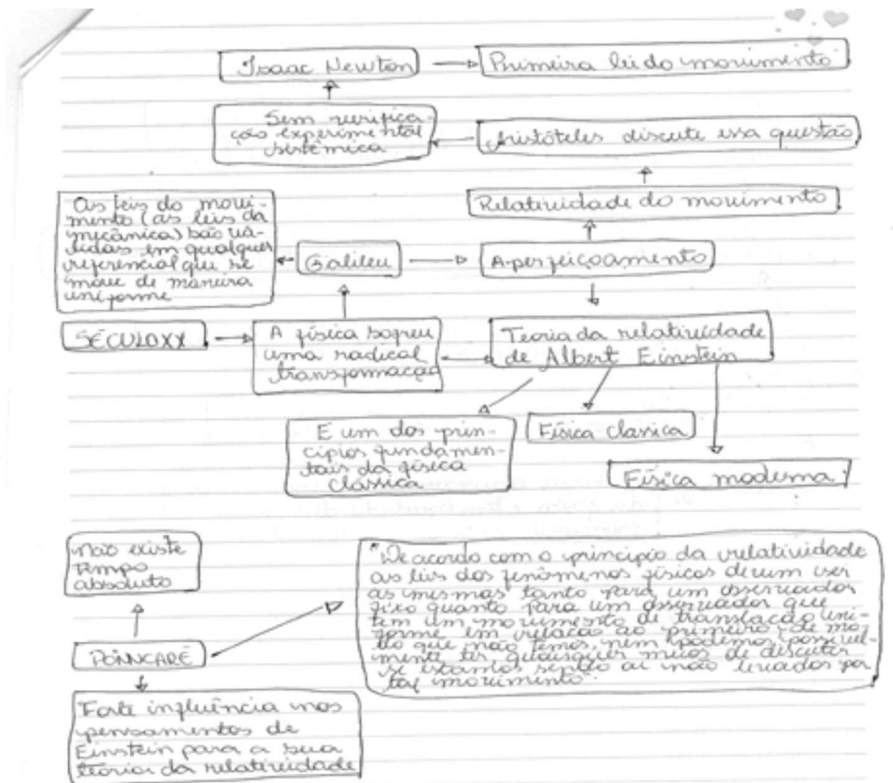 Isaac Newton
Primeira lei do movimento
Sem verifica-
ção experimental
sistêmica
Aristóteles discute essa questão
Relatividade do movimento
As leis do movi-
mento (as leis da
mecânica) são vá-
lidas em qualquer
referencial que se
move de maneira
uniforme
Galileu
Aperfeiçoamento
SÉCULO XX
A física sofreu
uma radical
transformação
Teoria da relatividade
de Albert Einstein
E um dos prin-
cípios fundamen-
tais da física
clássica
Física classica
Física moderna.
Não existe
tempo
absoluto
"De acordo com o principio da relatividade
as leis dos fenômenos físicos devem ser
as mesmas tanto para um observador
fixo quanto para um observador que
tem um movimento de translação uni-
forme em relação ao primeiro, de mo-
do que não temos, nem podemos possivel-
mente ter quaisquer meios de discutir
se estamos sendo ou não levados por
tal movimento".
POINNCARÉ
Forte influência nos
pensamentos de
Einstein para a sua
teoria da relatividade